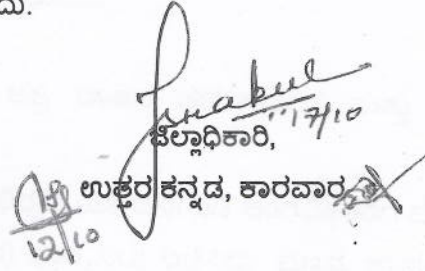 ದು.
17/10
ಜಿಲ್ಲಾಧಿಕಾರಿ,
ಉತ್ತರ ಕನ್ನಡ, ಕಾರವಾರ
12/10